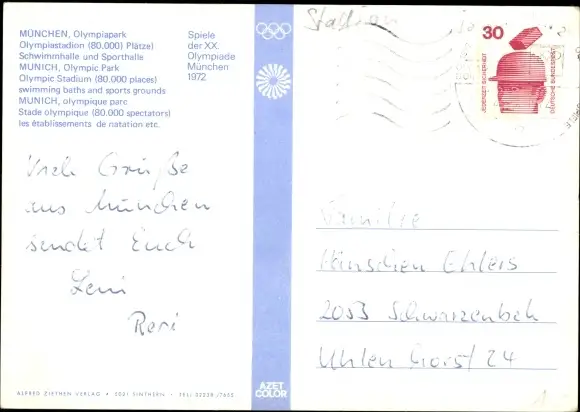 MÜNCHEN, Olympiapark
Olympiastadion (80.000) Plätze)
Schwimmhalle und Sporthalle
MUNICH, Olympic Park
Olympic Stadium (80.000 places)
swimming baths and sports grounds
MUNICH, olympique parc
Stade olympique (80.000 spectators)
les établissements de natation etc.
Spiele
der XX.
Olympiade
München
1972
30
JEDERZEIT SICHERHEIT
DEUTSCHE BUNDESPOST
Viele Grüße
aus München
sendet Euch
Leni
Resi
Familie
Hinschen Ehlers
2053 Schwarzenbek
Uhlenhorst 24
ALFRED ZIETHEN VERLAG • 5021 SINTHERN • TEL: 02238 /7655
AZET
COLOR
1